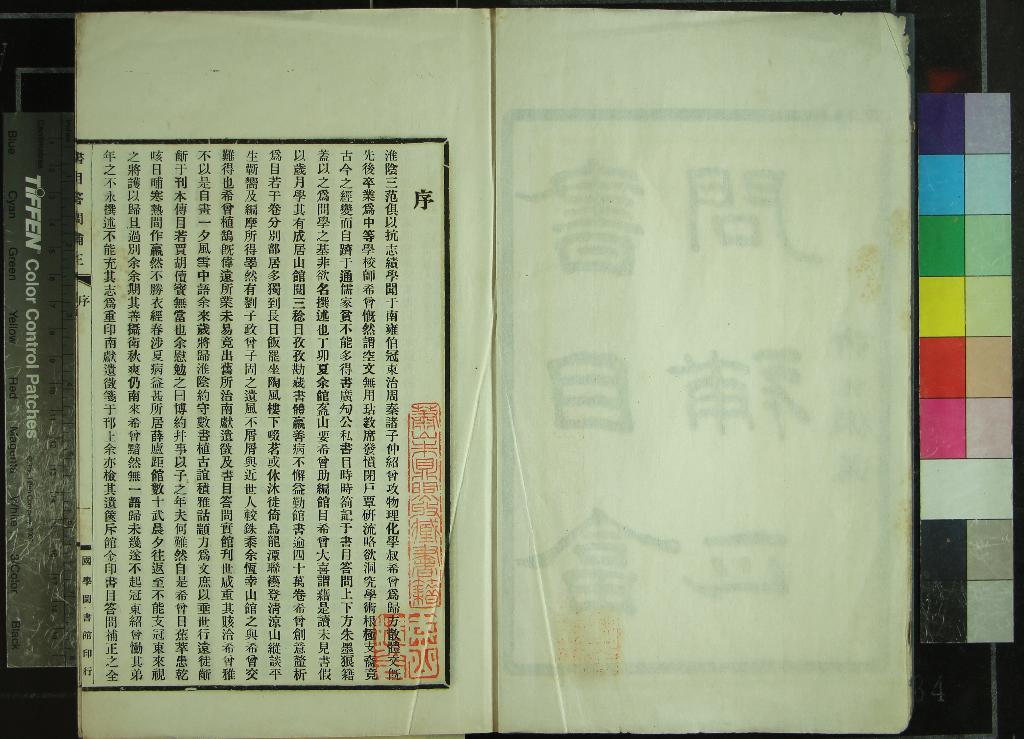 序
淮陰三范俱以抗志績學聞于南雍伯冠東治周秦諸子仲紹曾攻物理化學叔希曾爲歸方散體文旣
先後卒業爲中等學校師希曾慨然謂空文無用玷敎席發憤閉戶覃硏流略欲洞究學術根極支裔竟
古今之經變而自躋于通儒家貧不能多得書廣匃公私書目時時箚記于書目答問上下方朱墨狼籍
蓋以之爲問學之基非欲名撰述也丁卯夏余館盋山要希曾助編館目希曾大喜謂藉是讀未見書假
以歲月學其有成居山館閱三稔日孜孜勘藏書體羸善病不懈益勤館書逾四十萬卷希曾創意釐析
爲目若干卷分別部居多獨到長日飯罷坐陶風樓下啜茗或休沐徙倚烏龍潭聯襼登清涼山縱談平
生蘄嚮及編摩所得睪然有劉子政曾子固之遺風不屑屑與近世人較銖黍余恆幸山館之與希曾交
難得也希曾植鵠旣偉遠所業未易竟出舊所治南獻遺徵及書目答問實館刊世咸重其賅洽希曾雅
不以是自畫一夕風雪中語余來歲將歸淮陰約守數書植古誼積雅詁顓力爲文庶以垂世行遠徒斷
斷于刊本傳目若賈胡儥寶無當也余慰勉之曰博約幷事以子之年夫何難然自是希曾日蕉萃患乾
咳日晡寒熱間作羸然不勝衣經春涉夏病益甚所居薛廬距館數十武晨夕往返至不能支冠東來視
之將護以歸且過別余余期其善攝衛秋爽仍南來希曾黯然無一語歸未幾遂不起冠東紹曾慟其弟
年之不永撰述不能充其志爲重印南獻遺徵箋于邗上余亦檢其遺篋斥館金印書目答問補正之全
書目答問補正
序
一
國學圖書館印行
TIFFEN Color Control Patches
Blue
Cyan
Green
Yellow
Red
Magenta
White
3/Color
Black